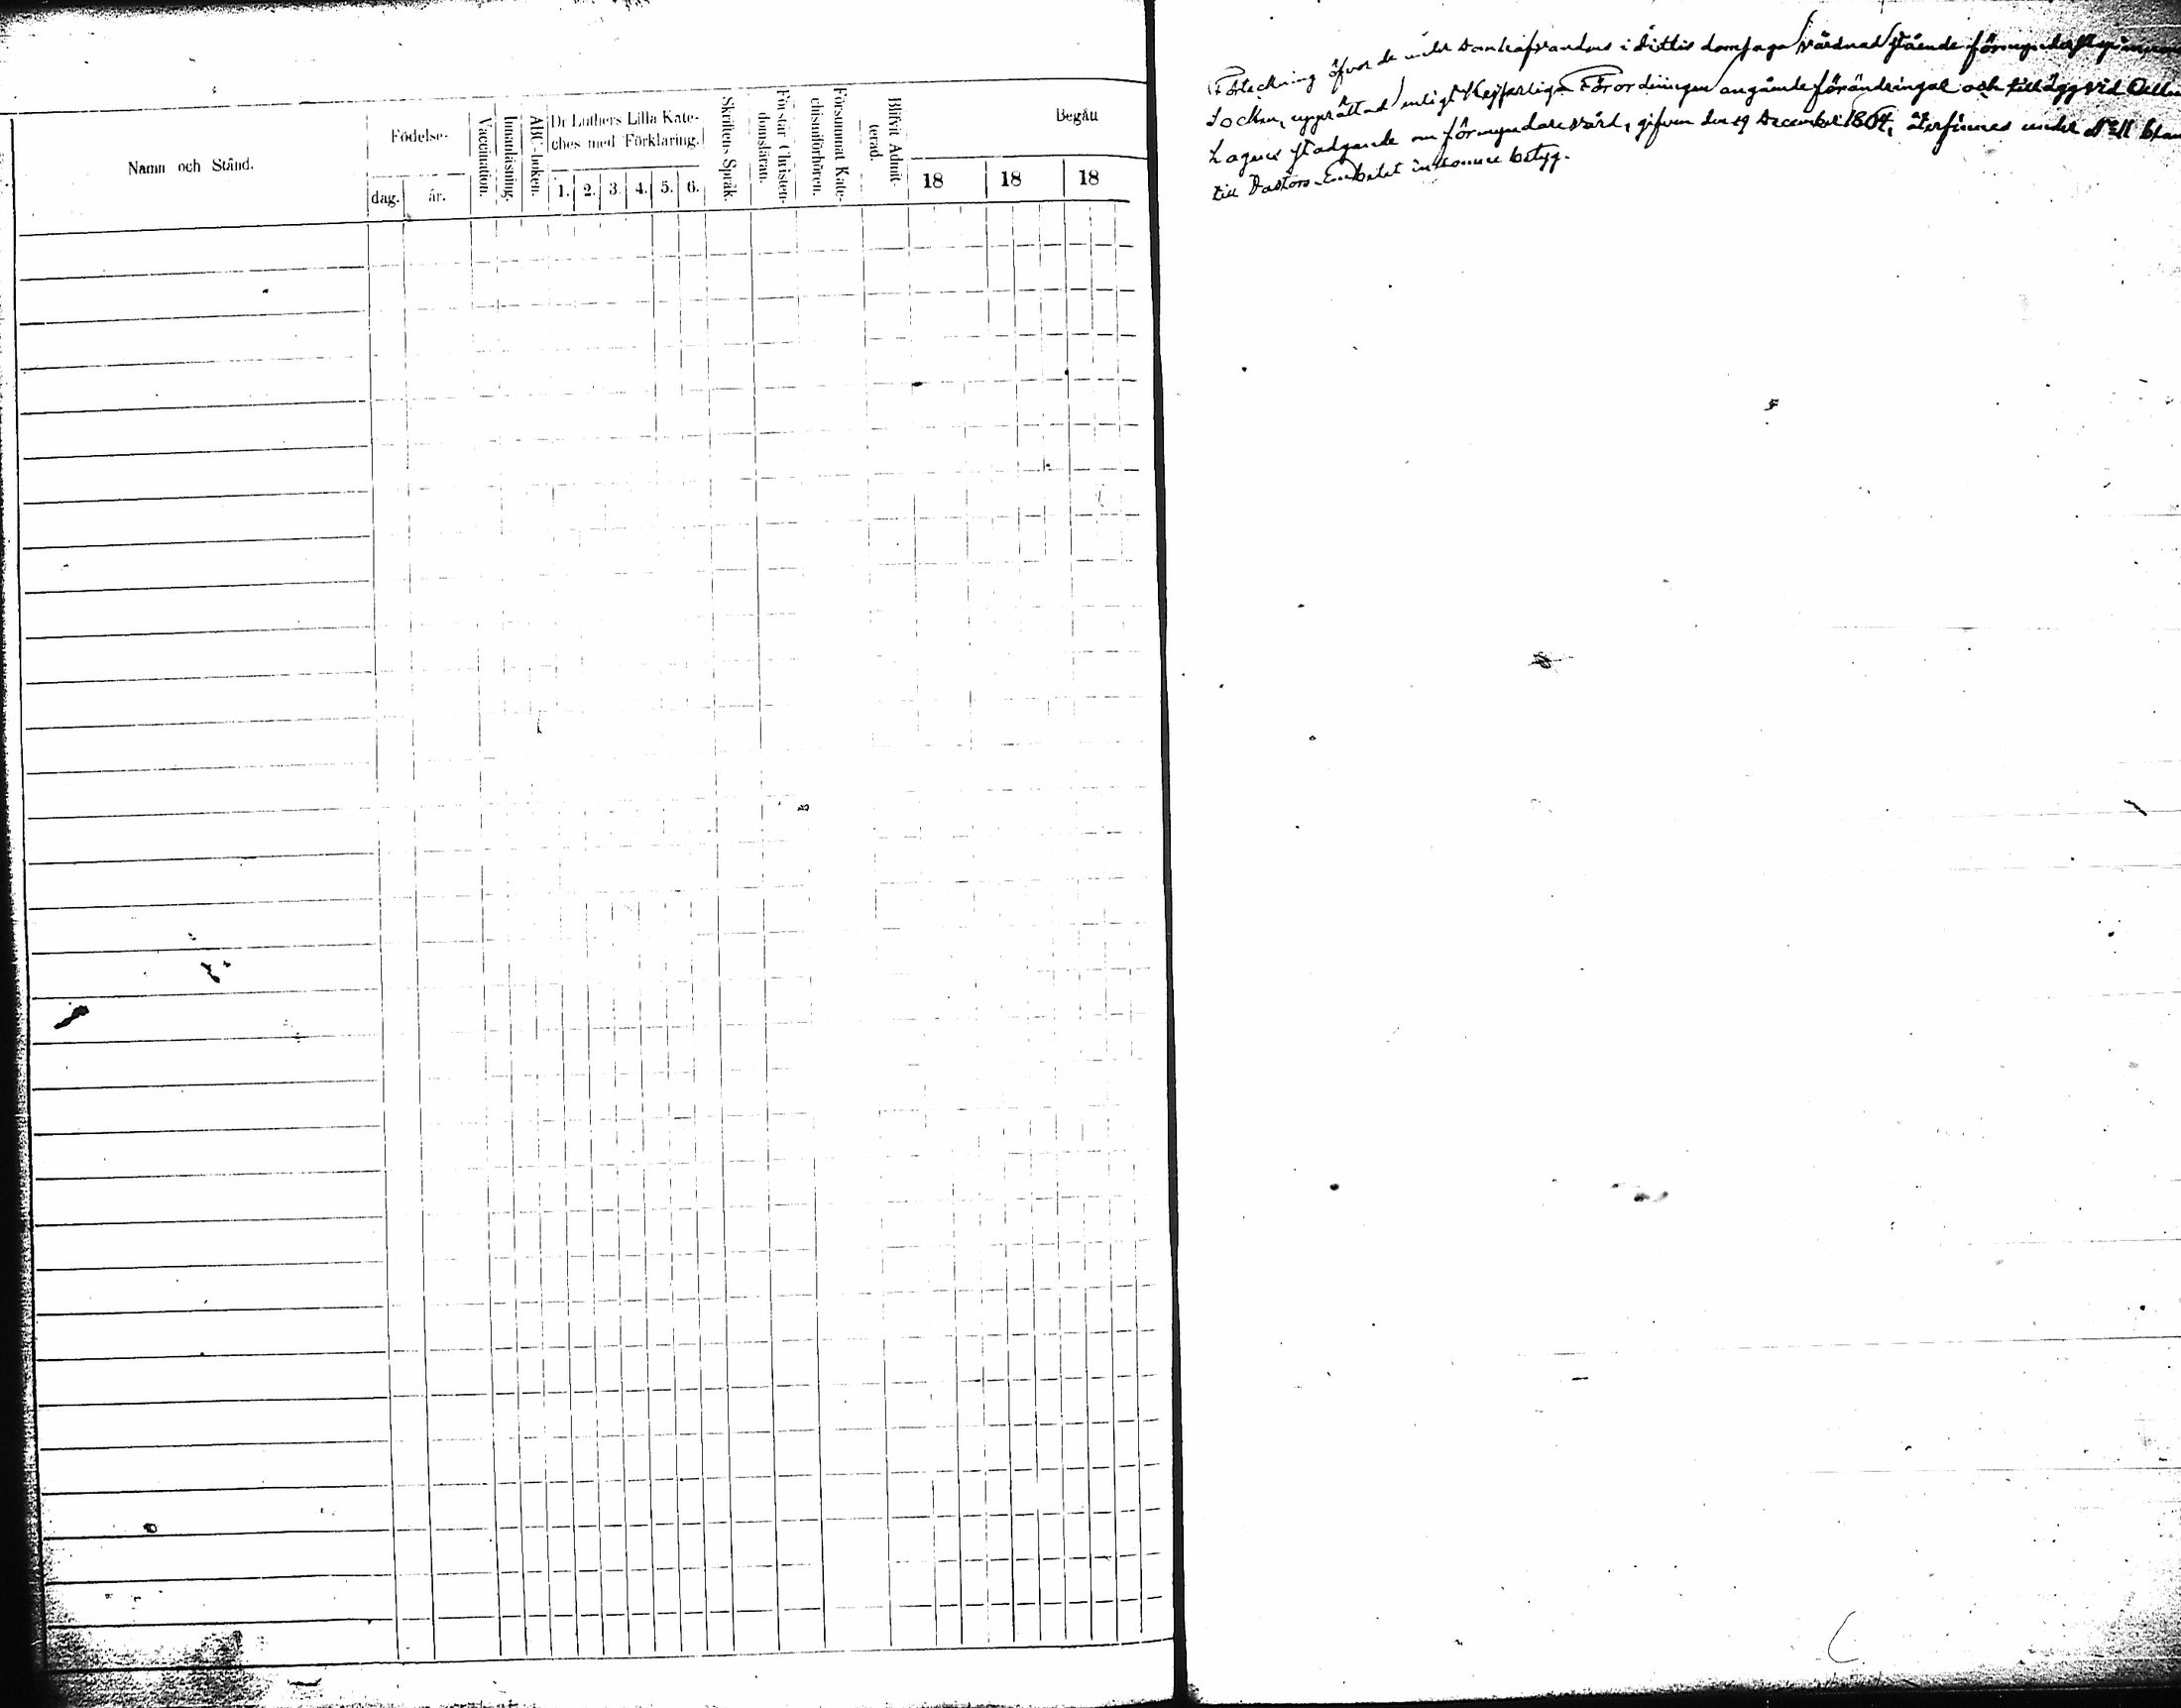 Namn och Stånd.
Födelse-
dag.
år.
Vaccination.
Innanläsning.
ABC-boken.
Dr Luthers Lilla Kate-
ches med Förklaring.
1. 2. 3. 4. 5. 6.
Skriftens Språk.
Förstår Christen-
domsläran.
Försummat Kate-
chismiförhören.
Blifvit Admit-
terad.
Begått
18 18 18
Förteckning öfver de under Domhafvandens i domsaga vårdnad stående
Socken, upprättad enligt Kejserliga Förordningen angående förändringar och tillägg vid
Lagens stadgande om förmyndarevård, gifven den 19 December 1864, återfinnes under
till Pastors-Embetet inkomne betyg.